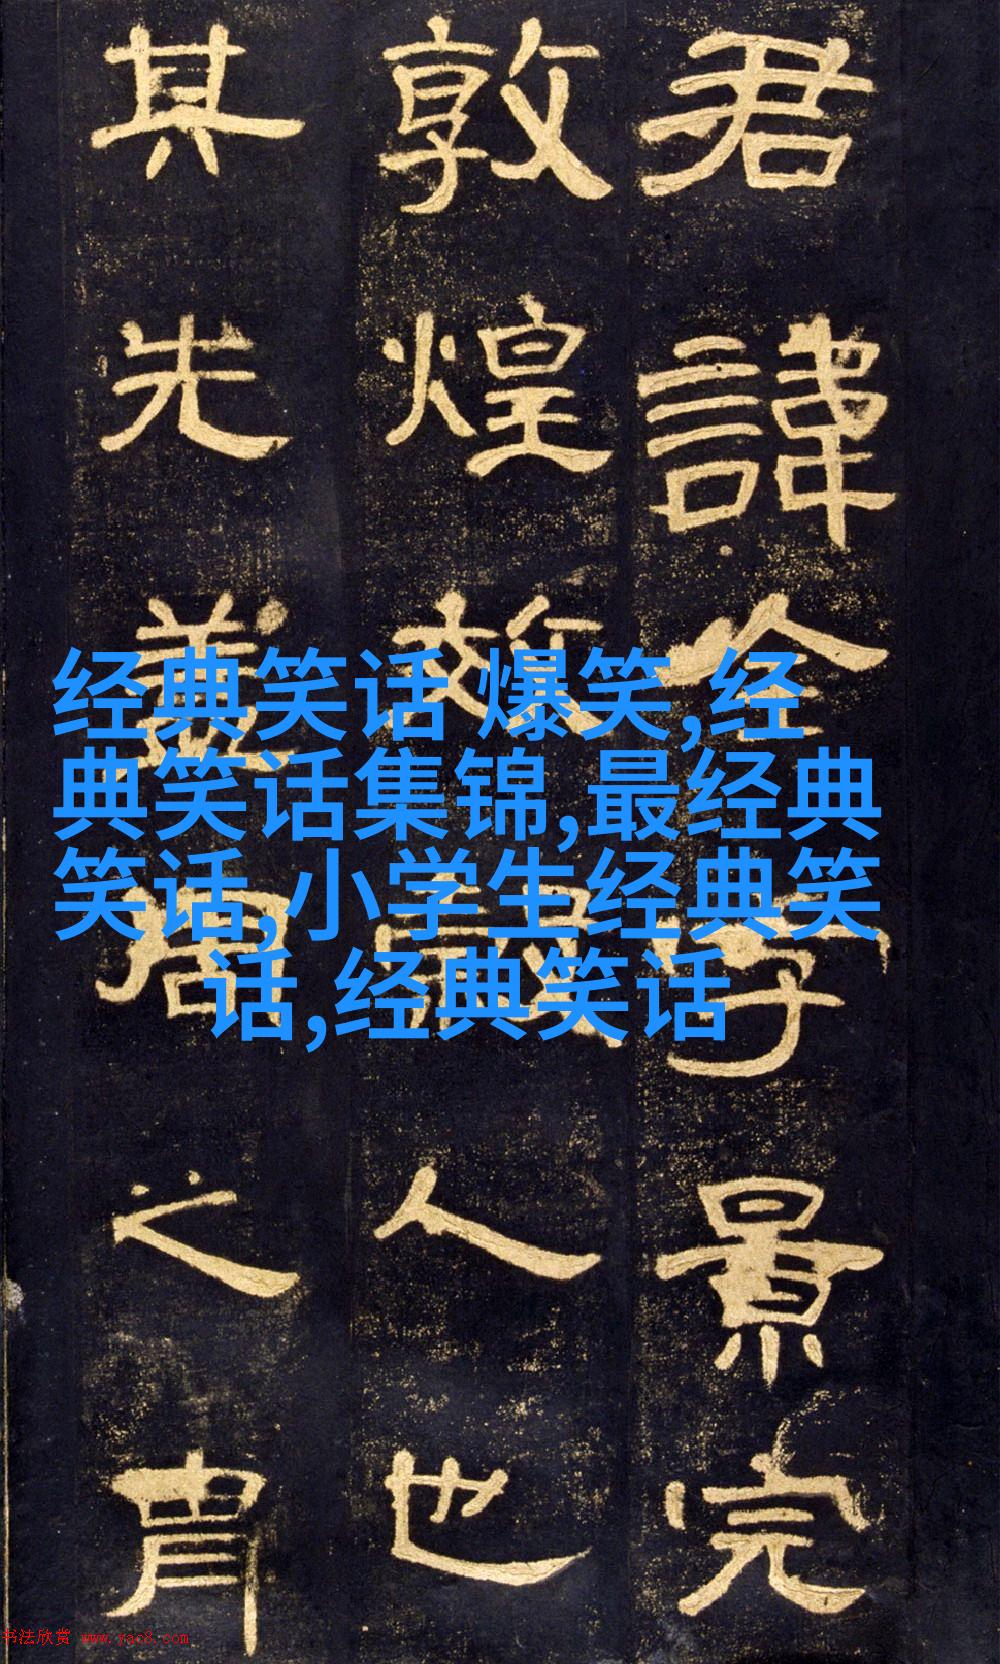 君諱全字景完
敦煌效人也
其先蓋周之胄
经典笑话 爆笑,经
典笑话集锦,最经典
笑话,小学生经典笑
话,经典笑话
书法欣赏 www.yac8.com